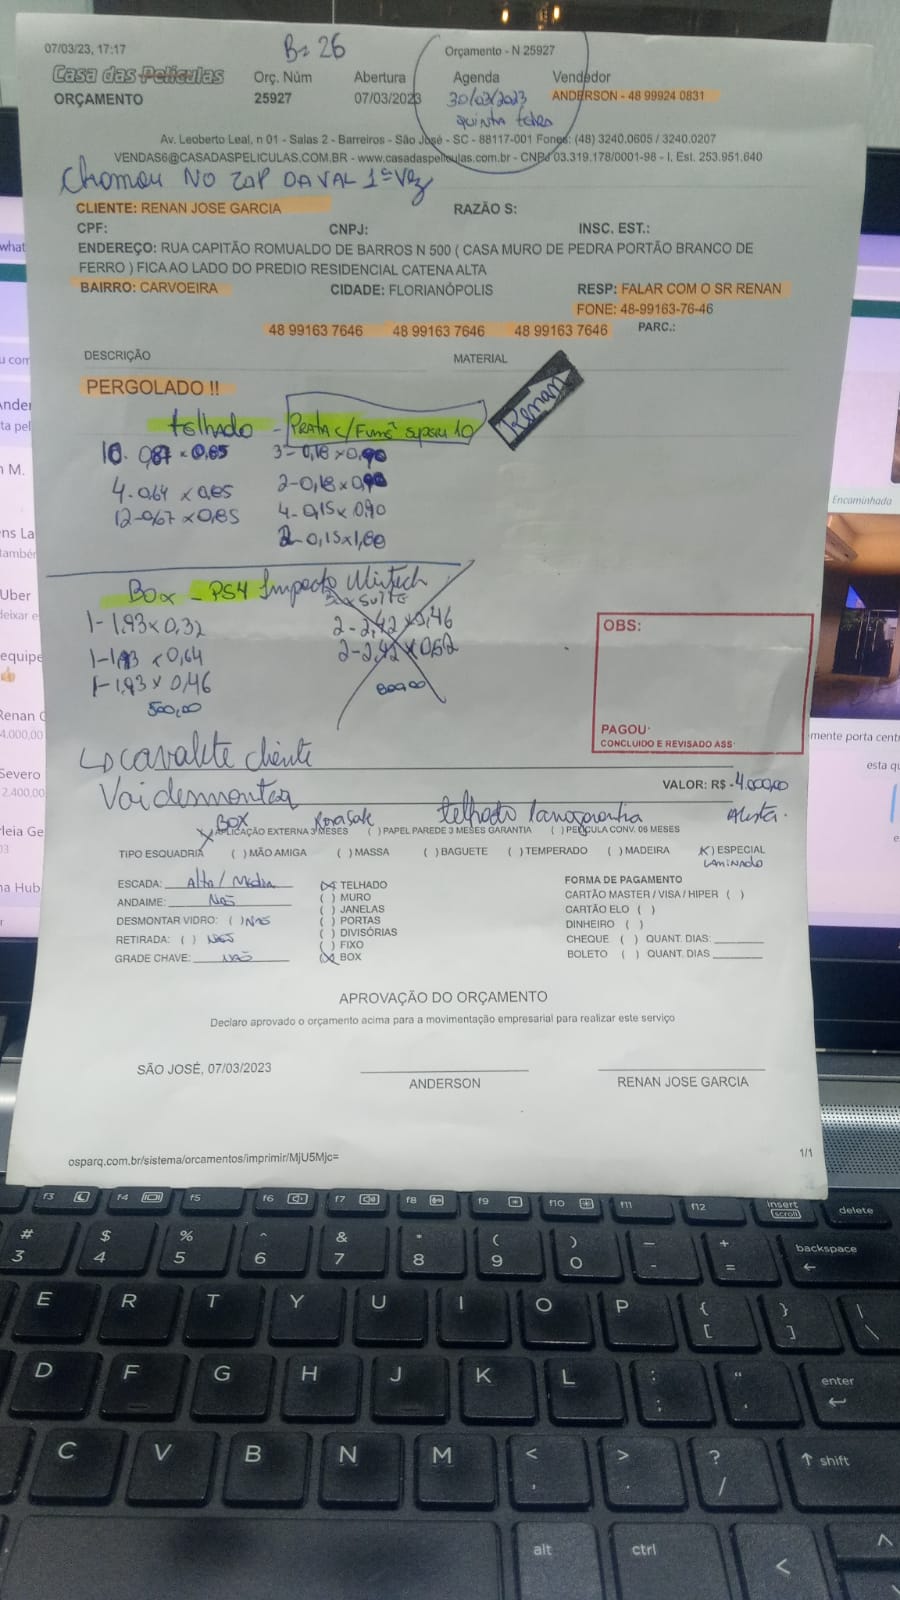 07/03/23, 17:17
B= 26
Orçamento - N 25927
Casa das Películas
Orç. Núm
Abertura
Agenda
Vendedor
ORÇAMENTO
25927
07/03/2023
30/03/2023
ANDERSON - 48 99924 0831
quinta feira
Av. Leoberto Leal, n 01 - Salas 2 - Barreiros - São José - SC - 88117-001 Fones: (48) 3240.0605 / 3240.0207
VENDAS6@CASADASPELICULAS.COM.BR - www.casadaspeliculas.com.br - CNPJ 03.319.178/0001-98 - I. Est. 253.951.640
Chamou NO ZAP DA VAL 1ª Vez
CLIENTE: RENAN JOSE GARCIA
RAZÃO S:
CPF:
CNPJ:
INSC. EST.:
ENDEREÇO: RUA CAPITÃO ROMUALDO DE BARROS N 500 ( CASA MURO DE PEDRA PORTÃO BRANCO DE
FERRO ) FICA AO LADO DO PREDIO RESIDENCIAL CATENA ALTA
BAIRRO: CARVOEIRA
CIDADE: FLORIANÓPOLIS
RESP: FALAR COM O SR RENAN
FONE: 48-99163-76-46
48 99163 7646 48 99163 7646 48 99163 7646
PARC.:
DESCRIÇÃO
MATERIAL
PERGOLADO !!
Renan
telhado - PRATA c/ Fumê super 10
10. 0,87 x 0,85
3 - 0,18 x 0,90
4 - 0,64 x 0,85
2 - 0,18 x 0,90
12 - 0,67 x 0,85
4 - 0,15 x 0,90
2 - 0,15 x 1,80
Box - PS4 Impacto Wintech
Suite
1 - 1,93 x 0,32
1 - 1,93 x 0,64
1 - 1,93 x 0,46
500,00
800,00
OBS:
PAGOU:
CONCLUIDO E REVISADO ASS:
cavalete cliente
Vai desmontar
VALOR: R$ - 4.000,00
BOX
telhado
APLICAÇÃO EXTERNA 3 MESES ( ) PAPEL PAREDE 3 MESES GARANTIA ( ) PELÍCULA CONV. 06 MESES
TIPO ESQUADRIA ( ) MÃO AMIGA ( ) MASSA ( ) BAGUETE ( ) TEMPERADO ( ) MADEIRA (X) ESPECIAL
LAMINADO
ESCADA: Alta / Média
ANDAIME: NÃO
DESMONTAR VIDRO: ( ) NÃO
RETIRADA: ( ) NÃO
GRADE CHAVE: NÃO
(X) TELHADO
( ) MURO
( ) JANELAS
( ) PORTAS
( ) DIVISÓRIAS
( ) FIXO
(X) BOX
FORMA DE PAGAMENTO
CARTÃO MASTER / VISA / HIPER ( )
CARTÃO ELO ( )
DINHEIRO ( )
CHEQUE ( ) QUANT. DIAS:
BOLETO ( ) QUANT. DIAS
APROVAÇÃO DO ORÇAMENTO
Declaro aprovado o orçamento acima para a movimentação empresarial para realizar este serviço
SÃO JOSÉ, 07/03/2023
ANDERSON
RENAN JOSE GARCIA
osparq.com.br/sistema/orcamentos/imprimir/MjU5Mjc=
1/1
Encaminhada
what
Uber
equipe
4.000,00
Severo
2.400,00
na Hub
mente porta centr
esta qu
f3 f4 f5 f6 f7 f8 f9 f10 f11 f12 insert scroll delete
# 3 $ 4 % 5 ^ 6 & 7 * 8 ( 9 ) 0 _ - + = backspace
E R T Y U I O P { [ } ] | \
D F G H J K L : ; " ' enter
C V B N M < , > . ? / shift
alt ctrl <